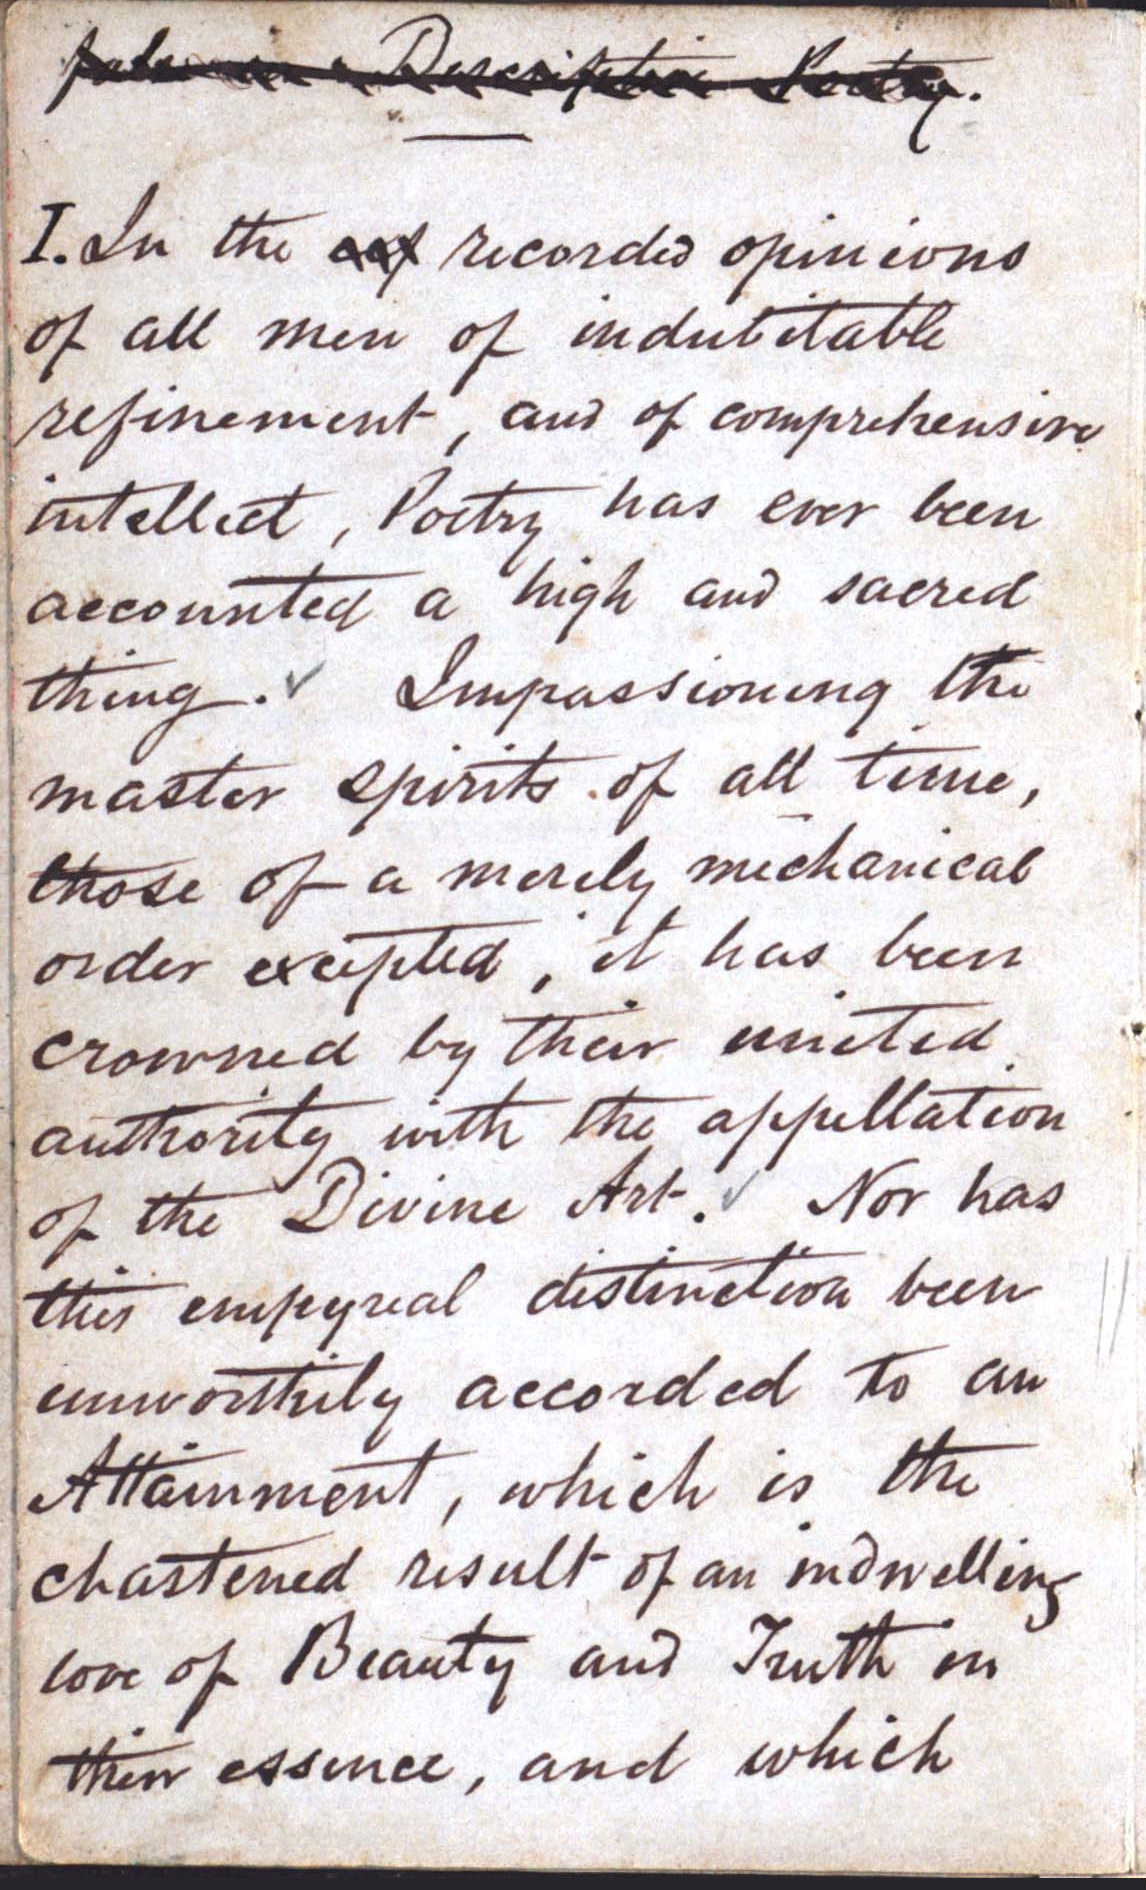 Descriptive Poetry.
I. In the recorded opinions
of all men of indubitable
refinement, and of comprehensive
intellect, Poetry has ever been
accounted a high and sacred
thing. Impassioning the
master spirits of all time,
those of a merely mechanical
order excepted, it has been
crowned by their united
authority with the appellation
of the Divine Art. Nor has
this empyreal distinction been
unworthily accorded to an
Attainment, which is the
chastened result of an indwelling
love of Beauty and Truth in
their essence, and which